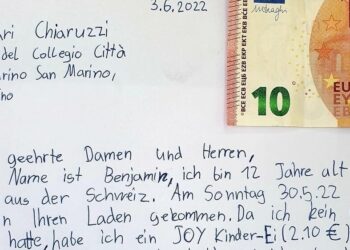 3.6.2022
ari Chiaruzzi
del Collegio Città
arino San Marino,
ino
BCE ECB ЕЦБ EZB EKP EKT EKB BCE EBC
10
EU
EY
EB
geehrte Damen und Herren,
Name ist Benjamin, ich bin 12 Jahre alt
aus der Schweiz. Am Sonntag 30.5.22
n Ihren Laden gekommen. Da ich kein
hatte, habe ich ein JOY Kinder-Ei (2.10 €)